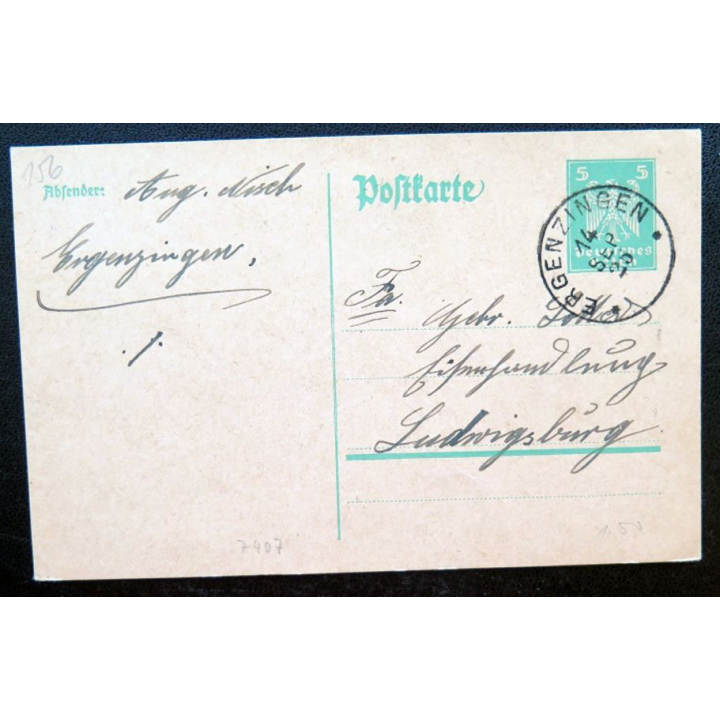 156
Absender: Aug. Nisch
Ergenzingen,
./.
Postkarte
5 5
Deutsches
ERGENZINGEN
14
SEP
Fa.
Gebr.
Eisenhandlung
Ludwigsburg.
7407
1.50